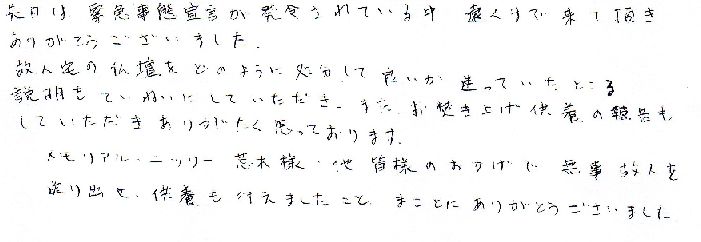 先月は 緊急事態宣言が発令されている中 遠くまで来て頂き
ありがとうございました。
故人宅の仏壇をどのように処分して良いか迷っていたところ
説明をていねいにしていただき、また、お焚き上げ供養の報告も
していただきありがたく思っております。
メモリアル・ニッソー 荒木様・他 皆様のおかげで 無事故人を
送り出せ、供養も行えましたこと、まことにありがとうございました